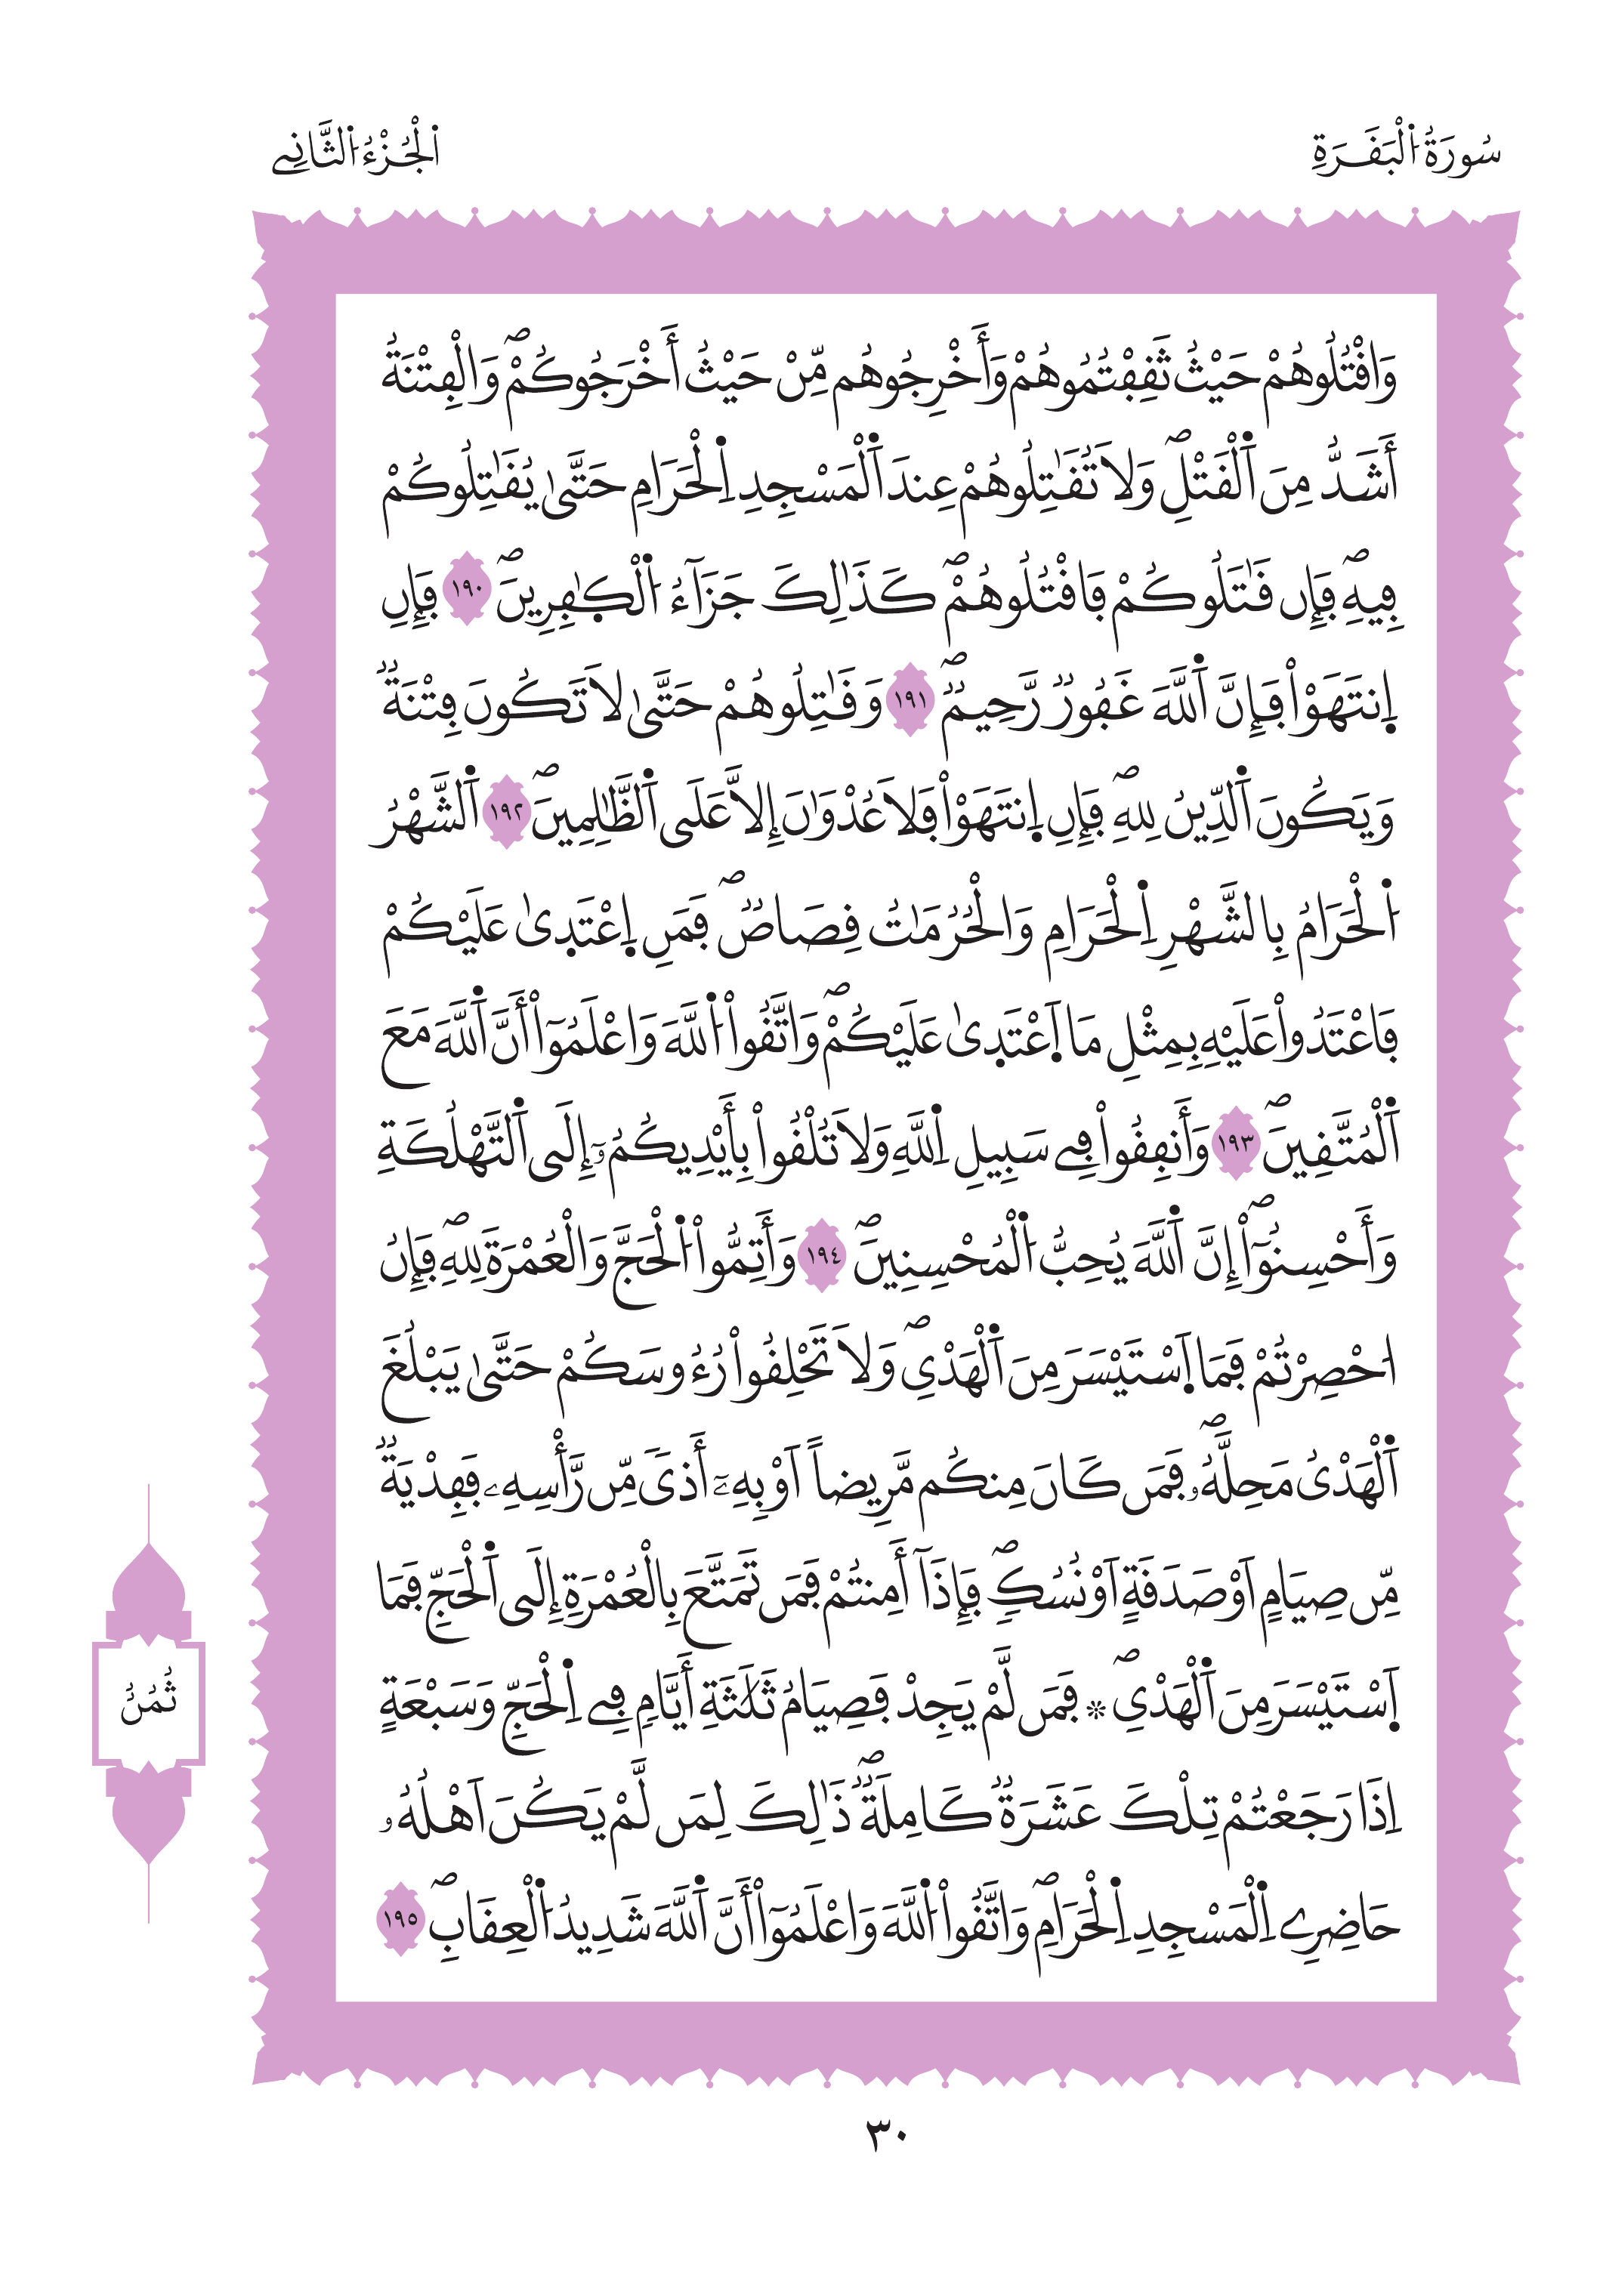 سُورَةُ اَ۬لْبَقَرَةِ
اَ۬لْجُزْءُ اُ۬لثَّانِے
وَاقْتُلُوهُمْ حَيْثُ ثَقِفْتُمُوهُمْ وَأَخْرِجُوهُم مِّنْ حَيْثُ أَخْرَجُوكُمْۖ وَالْفِتْنَةُ
أَشَدُّ مِنَ اَ۬لْقَتْلِۖ وَلَا تُقَٰتِلُوهُمْ عِندَ اَ۬لْمَسْجِدِ اِ۬لْحَرَامِ حَتَّىٰ يُقَٰتِلُوكُمْ
فِيهِۖ فَإِن قَٰتَلُوكُمْ فَاقْتُلُوهُمْۖ كَذَٰلِكَ جَزَآءُ اُ۬لْكٰ۪فِرِينَۖ ١٩٠ فَإِنِ
اِ۪نتَهَوْاْ فَإِنَّ اَ۬للَّهَ غَفُورٞ رَّحِيمٞۖ ١٩١ وَقَٰتِلُوهُمْ حَتَّىٰ لَا تَكُونَ فِتْنَةٞ
وَيَكُونَ اَ۬لدِّينُ لِلهِۖ فَإِنِ اِ۪نتَهَوْاْ فَلَا عُدْوَٰنَ إِلَّا عَلَى اَ۬لظَّٰلِمِينَۖ ١٩٢ اَ۬لشَّهْرُ
اُ۬لْحَرَامُ بِالشَّهْرِ اِ۬لْحَرَامِ وَالْحُرُمَٰتُ قِصَاصٞۖ فَمَنِ اِ۪عْتَد۪ىٰ عَلَيْكُمْ
فَاعْتَدُواْ عَلَيْهِ بِمِثْلِ مَا اَ۪عْتَد۪ىٰ عَلَيْكُمْۖ وَاتَّقُواْ اُ۬للَّهَ وَاعْلَمُوٓاْ أَنَّ اَ۬للَّهَ مَعَ
اَ۬لْمُتَّقِينَۖ ١٩٣ وَأَنفِقُواْ فِے سَبِيلِ اِ۬للَّهِ وَلَا تُلْقُواْ بِأَيْدِيكُمُۥٓ إِلَى اَ۬لتَّهْلُكَةِ
وَأَحْسِنُوٓاْۖ إِنَّ اَ۬للَّهَ يُحِبُّ اُ۬لْمُحْسِنِينَۖ ١٩٤ وَأَتِمُّواْ اُ۬لْحَجَّ وَالْعُمْرَةَ لِلهِۖ فَإِنُ
ا۟حْصِرْتُمْ فَمَا اَ۪سْتَيْسَرَ مِنَ اَ۬لْهَدْيِۖ وَلَا تَحْلِقُواْ رُءُوسَكُمْ حَتَّىٰ يَبْلُغَ
اَ۬لْهَدْيُ مَحِلَّهُۥۖ فَمَن كَانَ مِنكُم مَّرِيضاً اَوْ بِهِۦٓ أَذىٗ مِّن رَّأْسِهِۦ فَفِدْيَةٞ
مِّن صِيَامٍ اَوْ صَدَقَةٍ اَوْ نُسُكٖۖ فَإِذَآ أَمِنتُمْ فَمَن تَمَتَّعَ بِالْعُمْرَةِ إِلَى اَ۬لْحَجِّ فَمَا
اَ۪سْتَيْسَرَ مِنَ اَ۬لْهَدْيِۖ ۞ فَمَن لَّمْ يَجِدْ فَصِيَامُ ثَلَٰثَةِ أَيَّامٖ فِے اِ۬لْحَجِّ وَسَبْعَةٍ
اِذَا رَجَعْتُمْ تِلْكَ عَشَرَةٞ كَامِلَةٞۖ ذَٰلِكَ لِمَن لَّمْ يَكُنَ اَهْلُهُۥ
حَاضِرِے اِ۬لْمَسْجِدِ اِ۬لْحَرَامِۖ وَاتَّقُواْ اُ۬للَّهَ وَاعْلَمُوٓاْ أَنَّ اَ۬للَّهَ شَدِيدُ اُ۬لْعِقَابِۖ ١٩٥
ثُمُنُ
٣٠